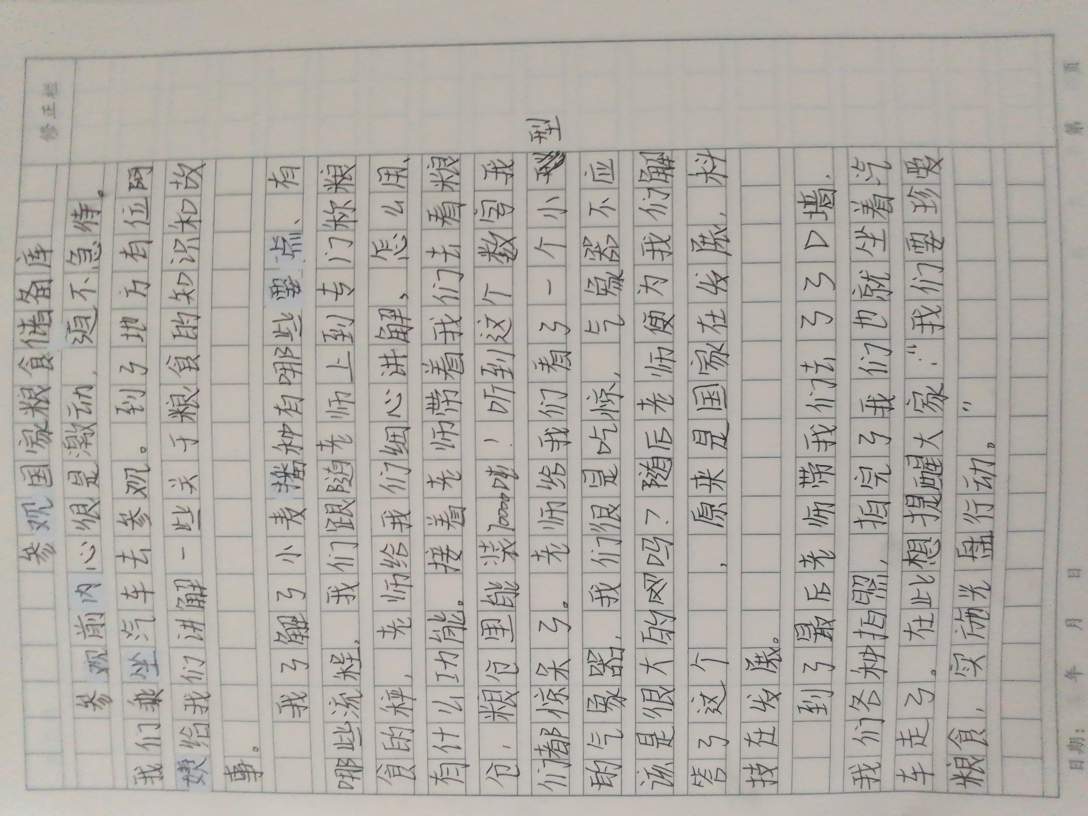 修正栏
参观国家粮食储备库
参观前内心很是激动,迫不急待。
我们乘坐汽车去参观。到了地方有位阿
姨给我们讲解一些关于粮食的知识和故
事。
我了解了小麦播种有哪些要点、有
哪些流程,我们跟随老师上到专门称粮
食的秤,老师给我们细心讲解、怎么用、
有什么功能。接着老师带着我们去看粮
仓,粮仓里能装7000吨!听到这个数字我
们都惊呆了。老师给我们看了一个小型
的气象器,我们很是吃惊,气象器不应
该是很大的吗?随后老师便为我们解
答了这个,原来是国家在发展,科
技在发展。
到了最后老师带我们去了3D墙,
我们各种拍照,拍完了我们也就坐着汽
车走了。在此想提醒大家:“我们要珍要
粮食,实施光盘行动。”
日期: 年 月 日 第 页